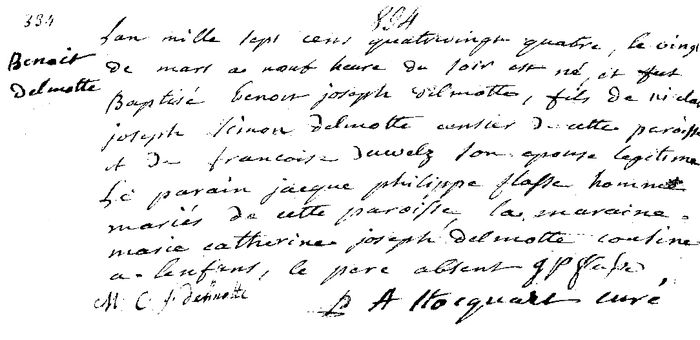 334
894
Benoit
Delmotte
Lan mille sept cens quatrevingt quatre, le vingt
de mars a neuf heure du soir est né, et fut
Baptisé benoit joseph Delmotte, fils de nicolas
joseph Simon delmotte censier de cette paroisse
et de francoise duwelz son epouse legitime
Le parain jacque philippe flasse homme
mariés de cette paroisse, la maraine
marie catherine joseph Delmotte cousine
a lenfant, le pere absent J P flasse
M. C. j. delmotte P A Stocquart curé